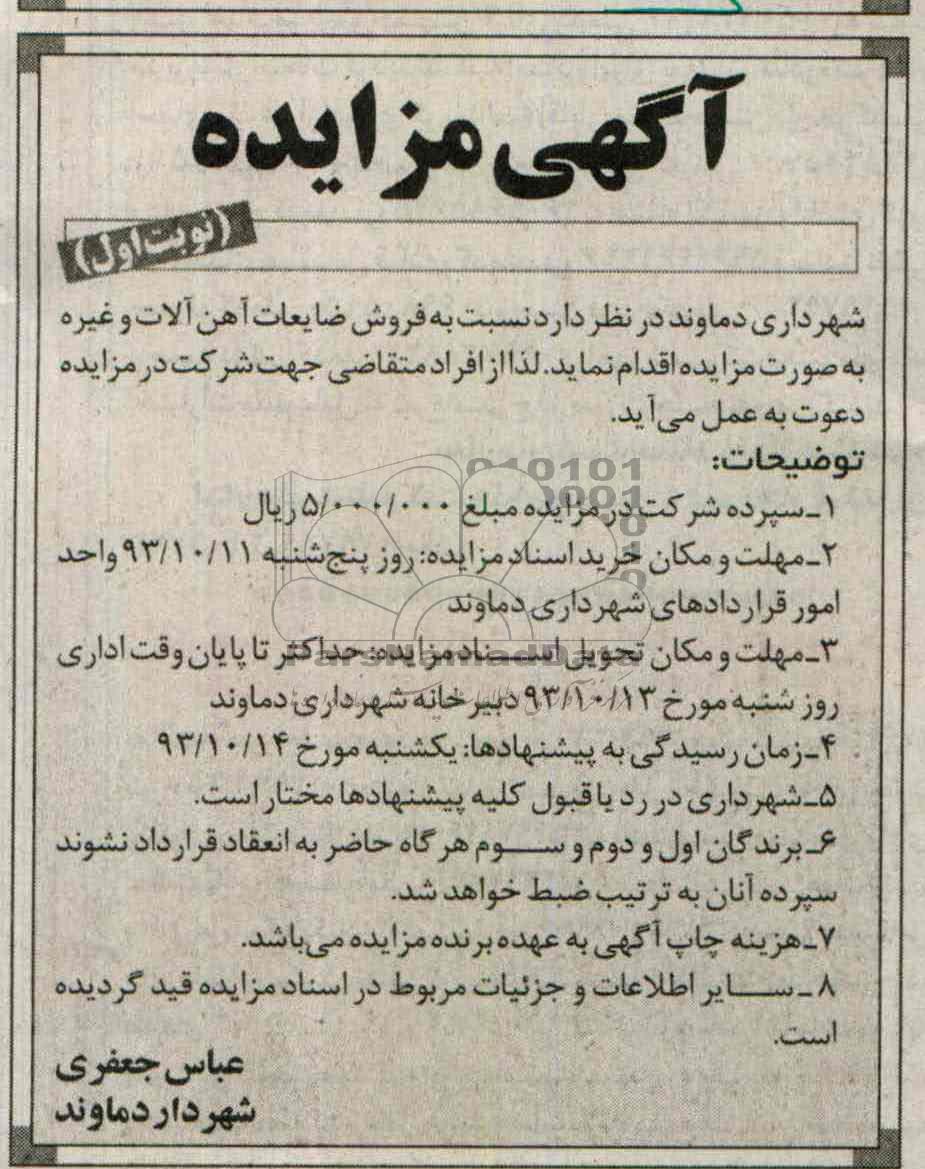 آگهی مزایده
(نوبت اول)
شهرداری دماوند در نظر دارد نسبت به فروش ضایعات آهن آلات و غیره
به صورت مزایده اقدام نماید. لذا از افراد متقاضی جهت شرکت در مزایده
دعوت به عمل می‌آید.
توضیحات:
۱ـ سپرده شرکت در مزایده مبلغ ۵/۰۰۰/۰۰۰ ریال
۲ـ مهلت و مکان خرید اسناد مزایده: روز پنج‌شنبه ۹۳/۱۰/۱۱ واحد
امور قراردادهای شهرداری دماوند
۳ـ مهلت و مکان تحویل اسـناد مزایده: حداکثر تا پایان وقت اداری
روز شنبه مورخ ۹۳/۱۰/۱۳ دبیرخانه شهرداری دماوند
۴ـ زمان رسیدگی به پیشنهادها: یکشنبه مورخ ۹۳/۱۰/۱۴
۵ـ شهرداری در رد یا قبول کلیه پیشنهادها مختار است.
۶ـ برندگان اول و دوم و سـوم هرگاه حاضر به انعقاد قرارداد نشوند
سپرده آنان به ترتیب ضبط خواهد شد.
۷ـ هزینه چاپ آگهی به عهده برنده مزایده می‌باشد.
۸ ـ سـایر اطلاعات و جزئیات مربوط در اسناد مزایده قید گردیده
است.
عباس جعفری
شهردار دماوند